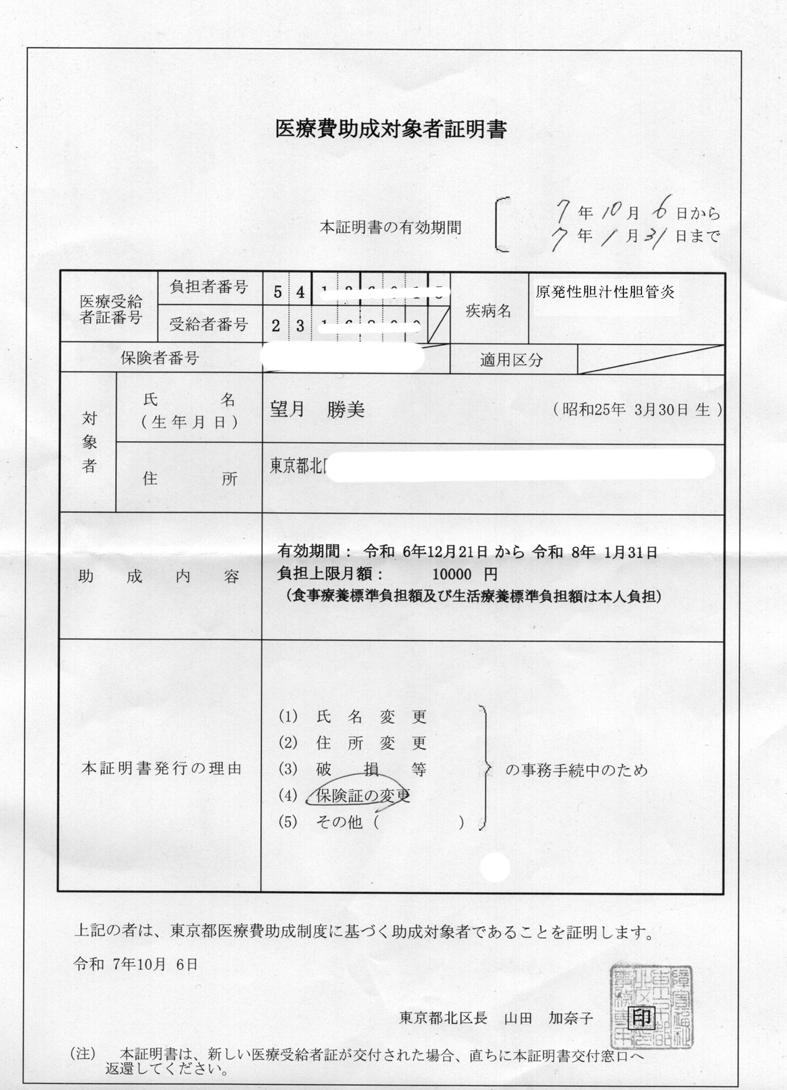 医療費助成対象者証明書
本証明書の有効期間
7年10月6日から
7年1月31日まで
医療受給者証番号
負担者番号 5 4
受給者番号 2 3
疾病名 原発性胆汁性胆管炎
保険者番号
適用区分
対象者
氏名
(生年月日)
望月 勝美 (昭和25年 3月30日 生)
住所 東京都北
助成内容
有効期間: 令和 6年12月21日 から 令和 8年 1月31日
負担上限月額: 10000 円
(食事療養標準負担額及び生活療養標準負担額は本人負担)
本証明書発行の理由
(1) 氏名変更
(2) 住所変更
(3) 破損等
(4) 保険証の変更
(5) その他( )
の事務手続中のため
上記の者は、東京都医療費助成制度に基づく助成対象者であることを証明します。
令和 7年10月 6日
東京都北区長 山田 加奈子 印
(注) 本証明書は、新しい医療受給者証が交付された場合、直ちに本証明書交付窓口へ
返還してください。